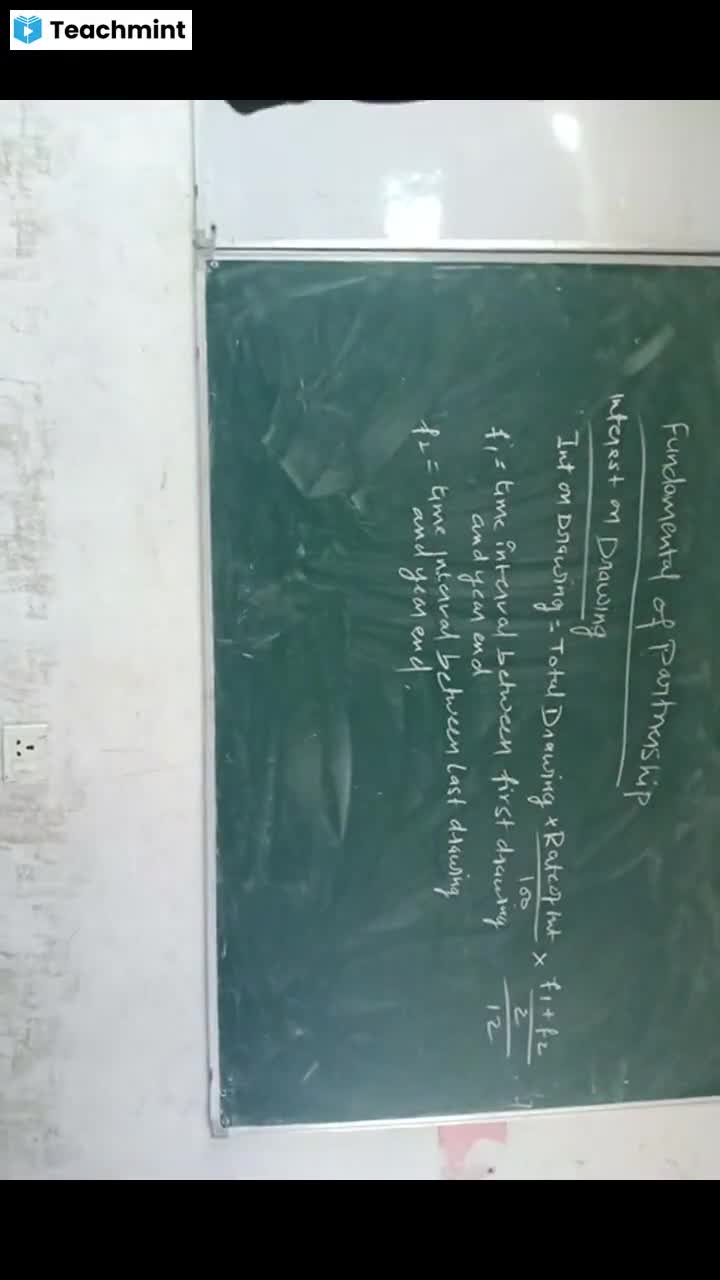 Teachmint
Fundamental of Partnership
Interest on Drawing
Int on Drawing = Total Drawing × Rate of Int / 100 × f1 + f2 / 2 / 12
f1 = time interval between first drawing
and year end
f2 = time Interval between Last drawing
and year end.